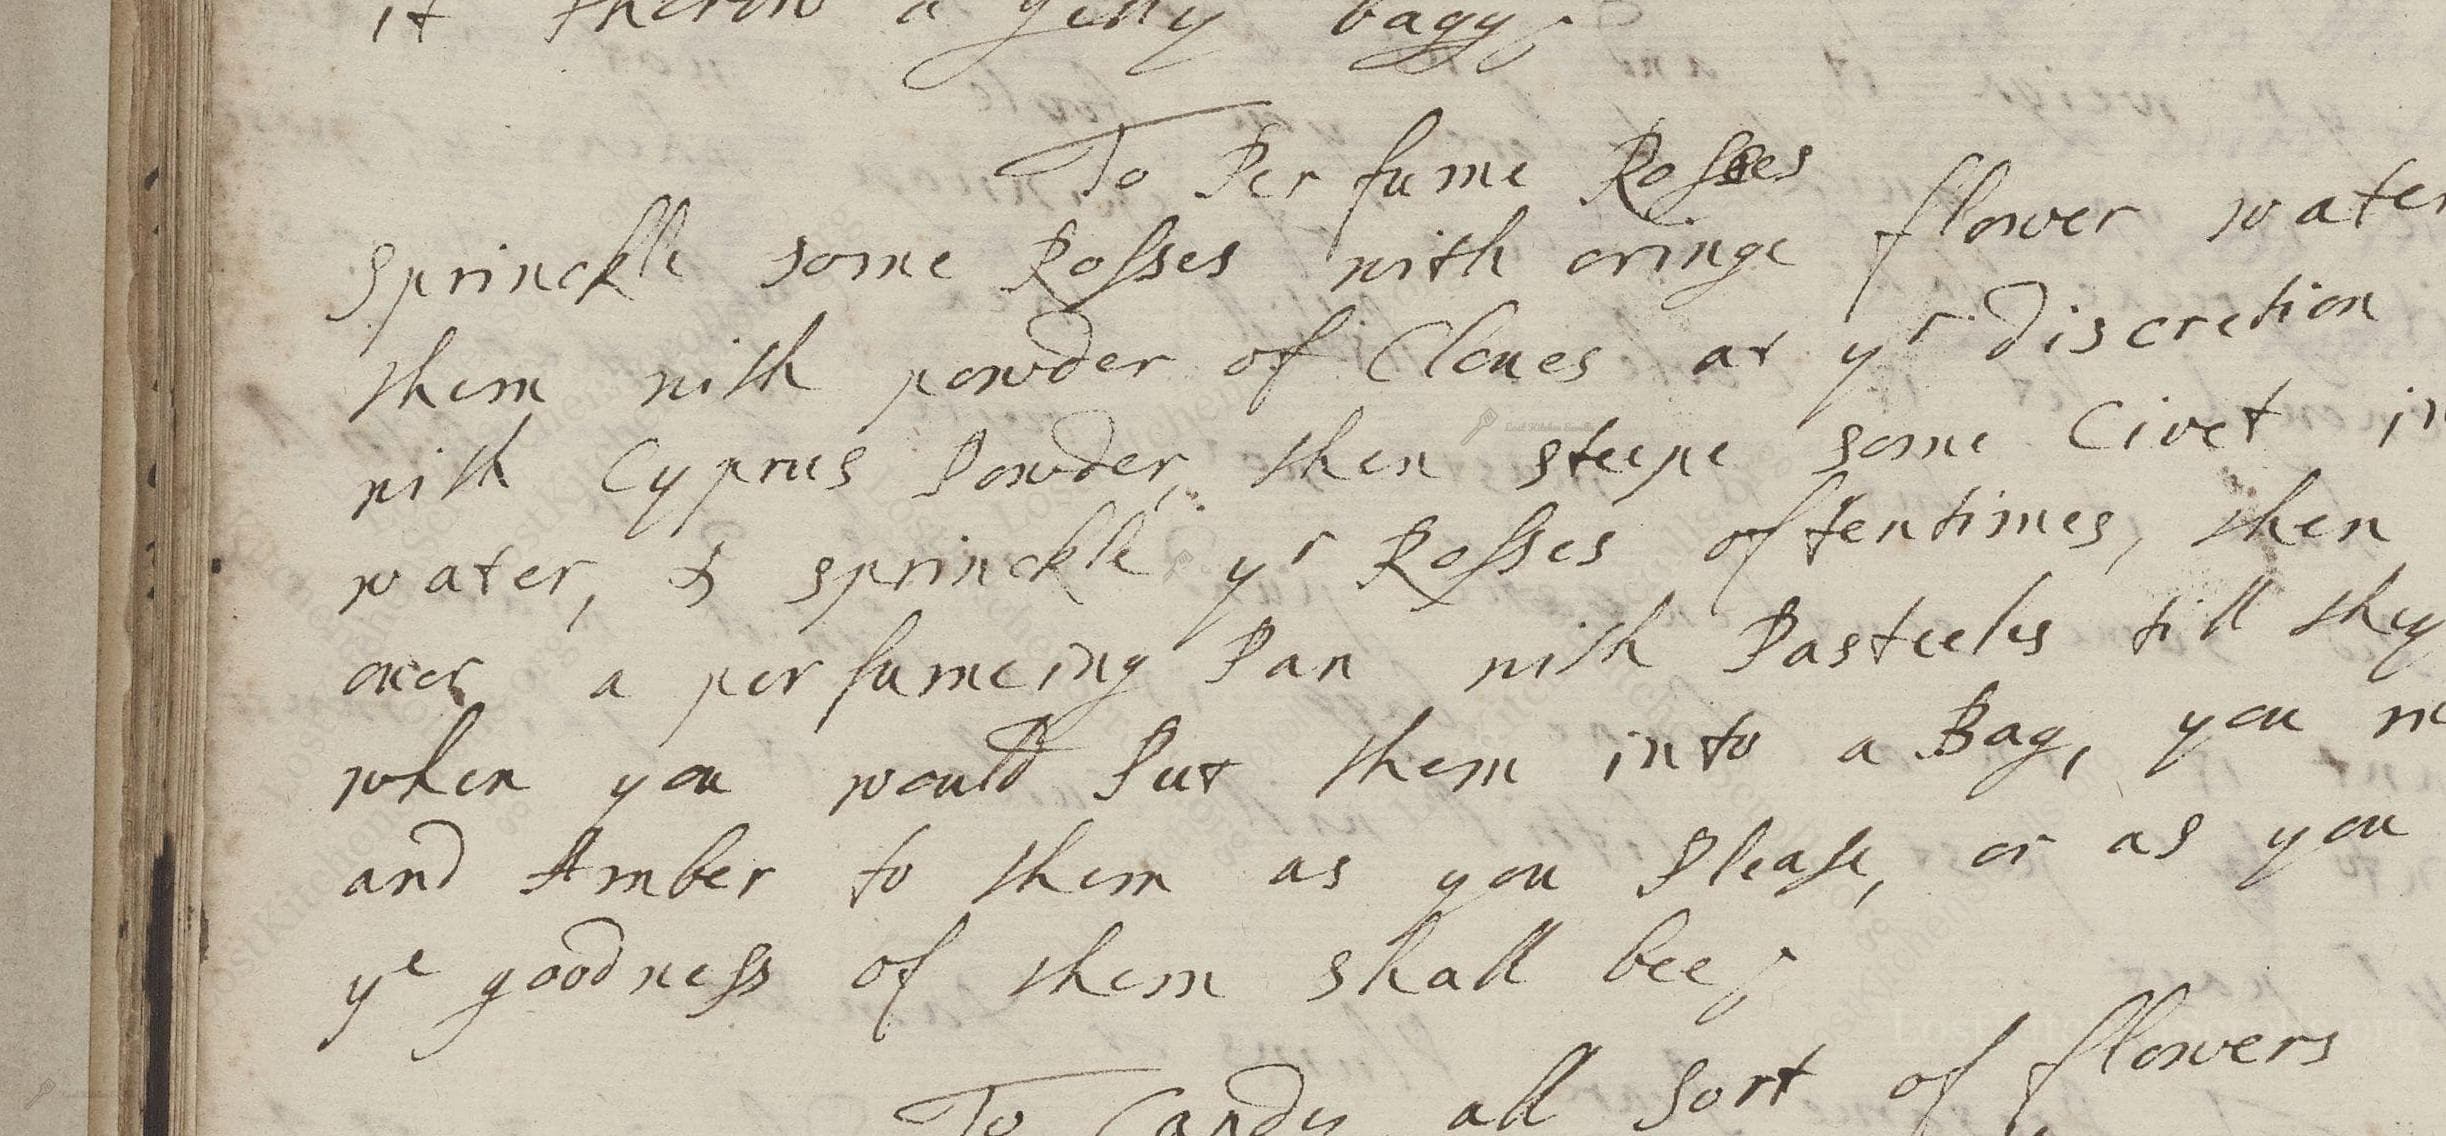 it throw a gelly bagg;
To Perfume Rosses
Sprinckle some Rosses with oringe flower water
them with powder of Cloues at yr discretion
with Cyprus Powder, then steepe some Civet in
water, & sprinckle yr Rosses oftentimes, then
over a perfumeing Pan with Pasteeles till they
when you would Put them into a Bag, you
and Amber to them as you Please, or as you
ye goodness of them shall bee;
To Candy all Sort of flowers